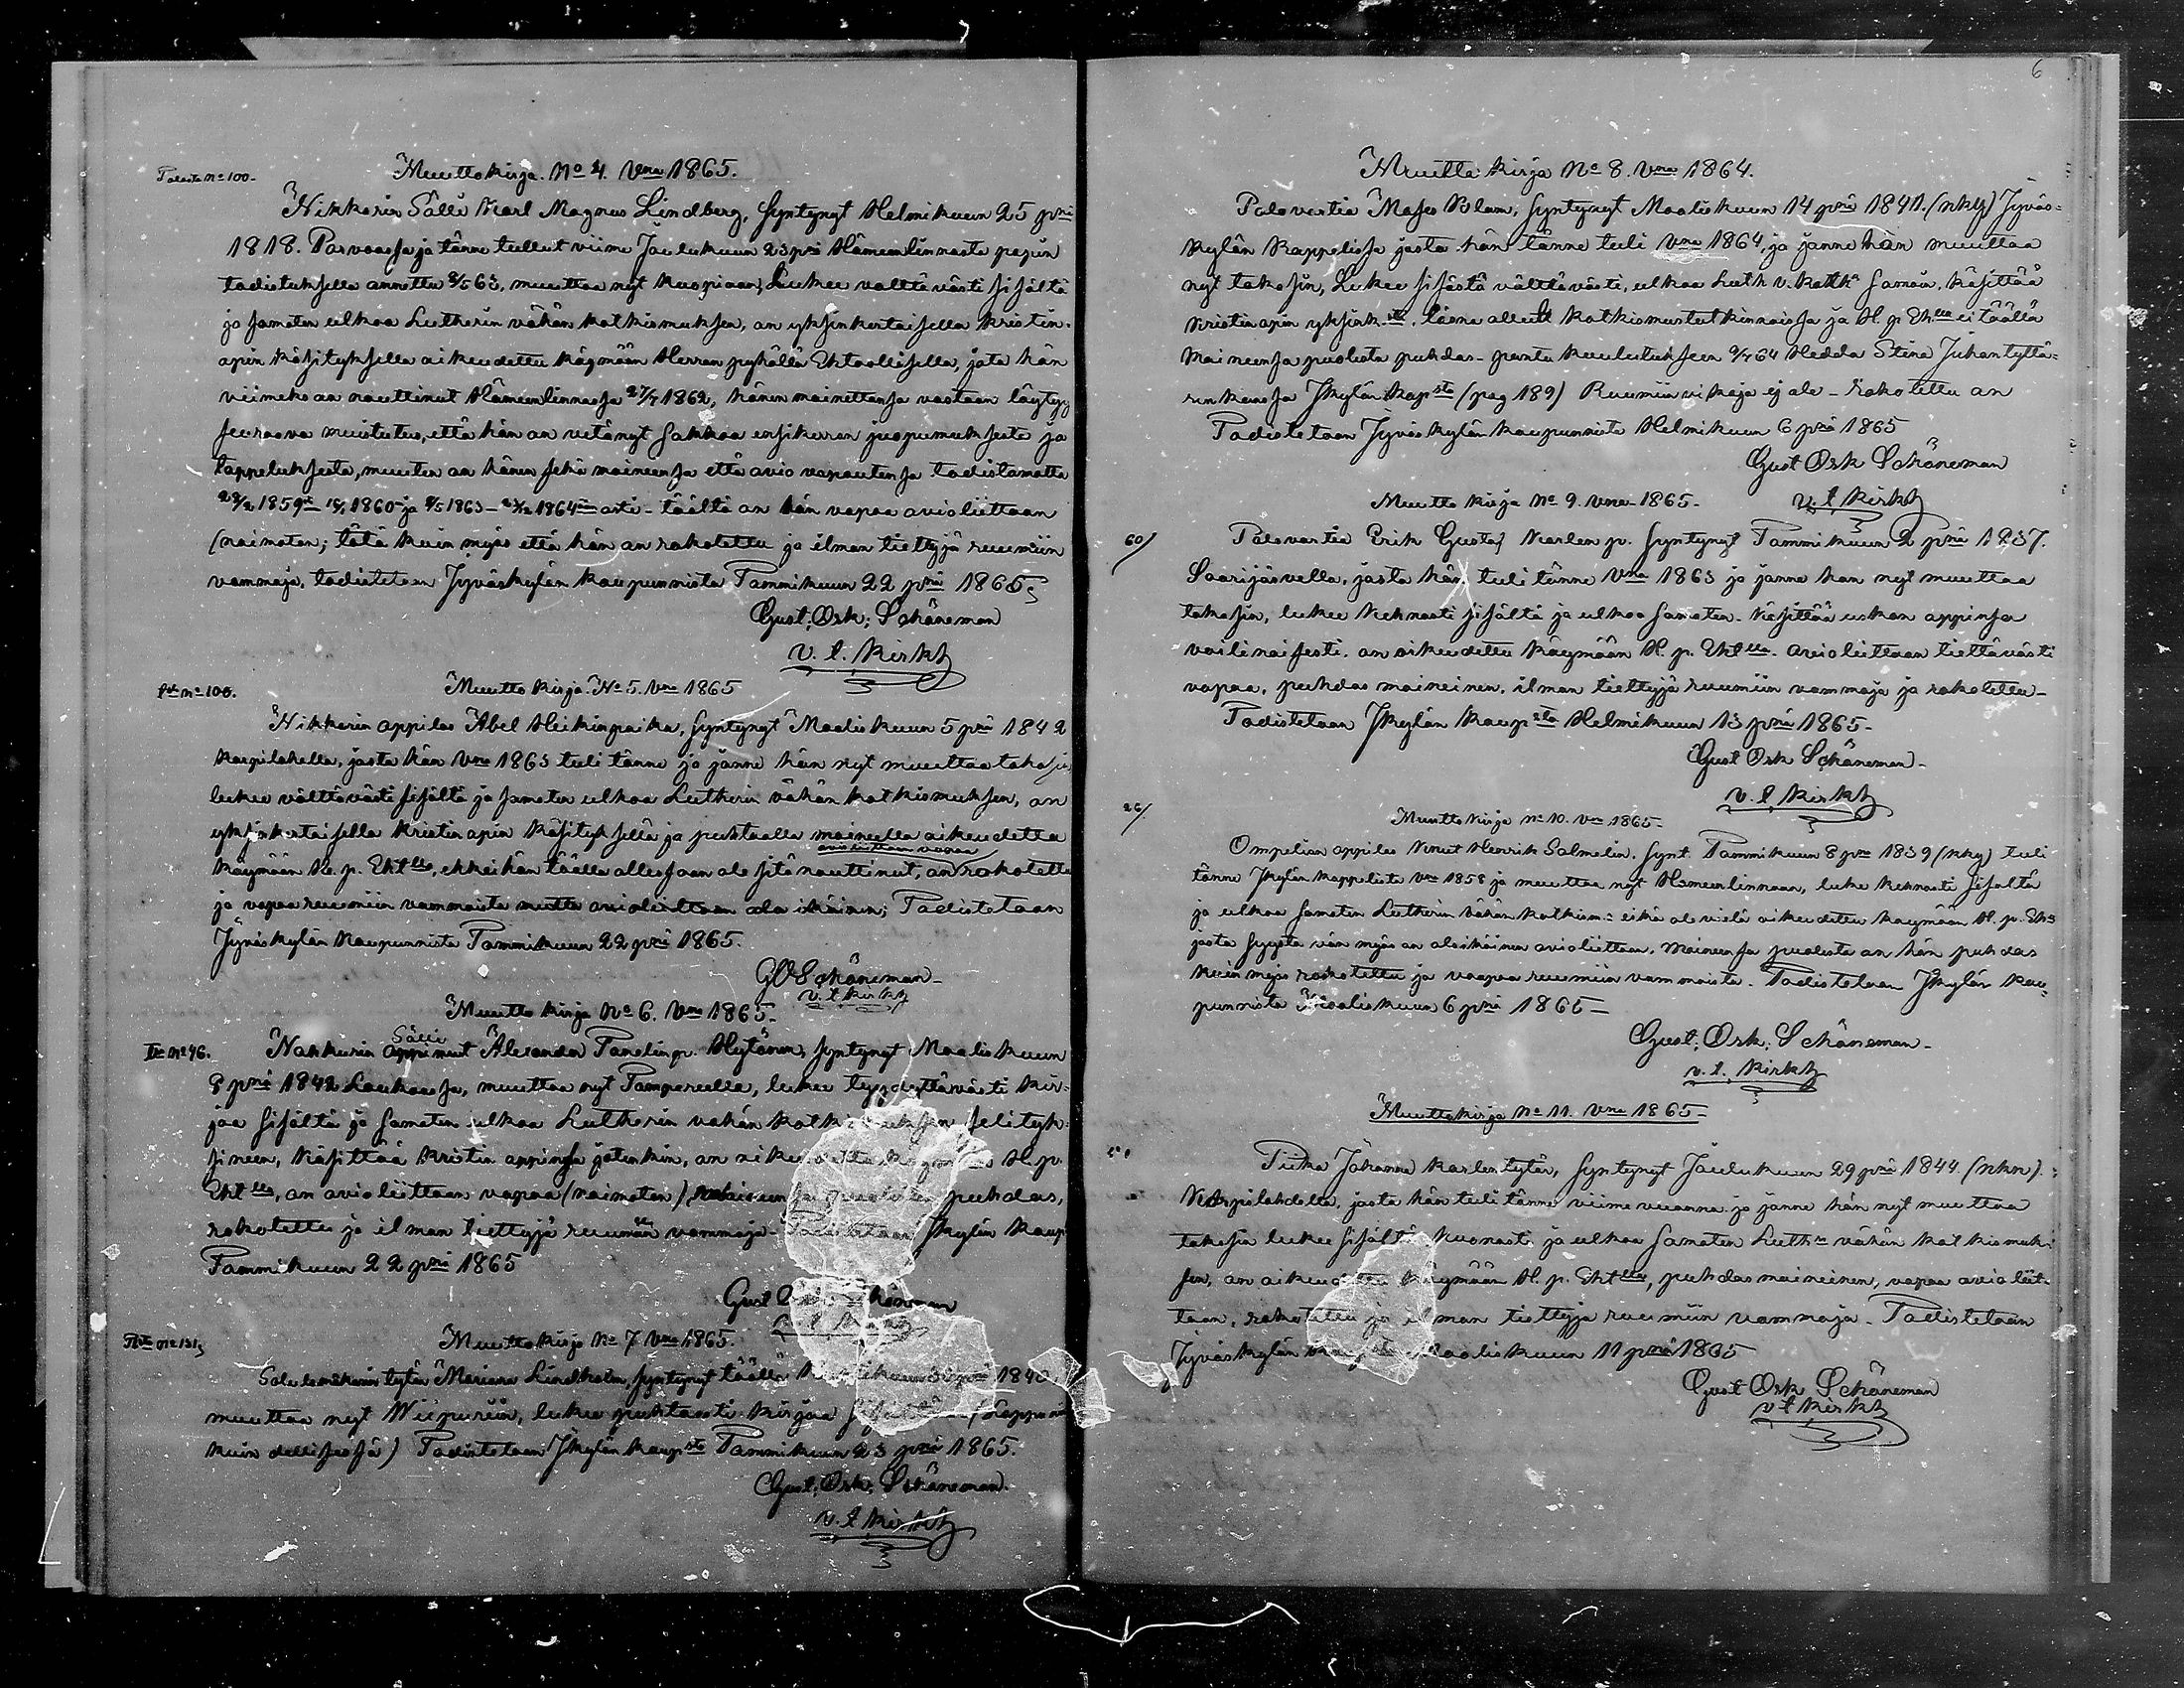 Muuttokirja. No 4. Vna 1865.
Talosta No 100.
Nikkarin Sälli Karl Magnus Lindberg, syntynyt Helmikuun 25 pnä
1818. Parvoossa ja tänne tullut viime Joulukuun 23 pnä Hämeenlinnasta papin
todistuksella annettu 8/5 63, muuttaa nyt Kuopioon, Lukee välttävästi sisältä
ja samaten ulkoa Lutherin vähän katkismuksen, on yksinkertaisella kristin-
opin käsityksellä oikeudettu käymään Herran pyhällä Ehtoollisella, jota hän
viimeksi on nauttinut Hämeenlinnassa 27/7 1862, hänen mainettansa vastaan löytyy
seuraava muistutus, että hän on vetänyt sakkoa ensikerran juopumuksesta ja
tappeluksesta, muuten on hänen sekä maineensa että avio vapautensa todistamatta
1859 1860 ja 8/5 1863 1864 asti - täältä on hän vapaa avioliittoon
(naimaton; tätä kuin myös että hän on rokotettu ja ilman tiettyjä ruumiin
vammoja, todistetaan Jyväskylän kaupunnista Tammikuun 22 pnä 1865
Gust; Osk; Schöneman
v. t. Kirkh
Muutto kirja. No 5. Vna 1865
No 100.
Nikkarin oppilas Abel Heikinpoika, syntynyt Maaliskuun 5 pnä 1842
Korpilahella, josta hän Vna 1863 tuli tänne ja jänne hän nyt muuttaa takasin
lukee välttävästi sisältä ja samaten ulkoa Lutherin vähän katkismuksen, on
yksinkertaisella kristin opin käsityksellä ja puhtaalla maineella oikeudettu
avioliittoon vapaa
käymään H. p. Ehtlla, ehkei hän täällä ollessaan ole sitä nauttinut, on rokotettu
ja vapaa ruumiin vammoista mutta avioliittoon ala ikäinen; Todistetaan
Jyväskylän Kaupunnista Tammikuun 22 pnä 1865.
GOSchöneman
v. t. kirkh
Muutto kirja No 6. Vna 1865.
No 46.
Sälli
Nahkurin Alexander Tanelin p. Hytönen, syntynyt Maaliskuun
8 pnä 1842 Laukaassa, muuttaa nyt Tampereella, lukee tyydyttävästi kir-
jaa sisältä ja samaten ulkoa Lutherin vähän selityk-
sineen, käsittää kristin oppinsa jotenkin, on H. p.
Ehtlla, on avioliittoon vapaa (naimaton) puhdas,
rokotettu ja ilman tiettyjä ruumiin vammoja - Jkylän Kaup
Tammikuun 22 pnä 1865
Gust
Muuttokirja No 7 Vna 1865.
No 131
tytär Mariana Lindholm, syntynyt täällä 1840,
muuttaa nyt Wiipuriin, lukee puhtaasti kirjaa
Todistetaan Jkylän Kaupsta Tammikuun 23 pnä 1865.
Gust; Osk; Schöneman.
v. t Kirkh
6
Muutto kirja No 8. Vna 1864.
Palovartia Syntynyt Maaliskuun 14 pnä 1841. (nkyl) Jyväs-
kylän Kappelissa josta hän tänne tuli Vna 1864, ja jänne hän muuttaa
nyt takasin, Lukee sisästä välttävästi, ulkoa Luth v. katkn samoin, käsittää
kristin opin yksink. katkismustutkinnoissa ja H. p. Ehlla ei täällä
Maineensa puolesta puhdas - pantu kuulutukseen 64 Hedda Stina Juhantyttä-
ren kanssa Jkylän kapsta (pag 189) Ruumiin vikoja ej ole - rokotettu on
Todistetaan Jyväskylän Kaupunnista Helmikuun 6 pnä 1865
Gust Osk Schöneman
v. t. Kirkh
Muutto kirja No 9. Vna 1865.
60/
Palovartia Erik Gustaf Karlen p. syntynyt Tammikuun 2 pnä 1837.
Saarijärvella, josta hän tuli tänne Vna 1863 ja jänne han nyt muuttaa
takasin, lukee kehnosti sisältä ja ulkoa samaten. käsittää uskon oppinsa
vailinaisesti. on oikeudettu käymään H. p. Ehtlla. avioliittoon tiettävästi
vapaa, puhdas maineinen, ilman tiettyjä ruumiin vammoja ja rokotettu -
Todistetaan Jkylän Kaupsta Helmikuun 13 pnä 1865 -
Gust Osk Schöneman -
v. t Kirkh
26/
Muutto kirja No 10. Vna 1865 -
Ompelian oppilas Knut Henrik Salmelin, synt. Tammikuun 8 pnä 1839 (nky) tuli
tänne Jkylän kappelista Vna 1858 ja muuttaa nyt Hameenlinnaan, luke kehnosti sisaltä
ja ulkoa samaten Lutherin vähän katkism: eikä ole vielä oikeudettu kaymään H. p. Eht
josta syystä hän myös on alaikäinen avioliittoon. Maineensa puolesta on hän puhdas
kuin myös rokotettu ja vapaa ruumiin vammoista. Todistetaan Jkylän kau-
punnista Maaliskuun 6 pnä 1865 -
Gust; Osk; Schöneman -
v. t. Kirkh
Muuttokirja No 11. Vna 1865 -
Piika Johanna Karlen tytär, syntynyt Joulukuun 29 pnä 1844. (nkn).
Korpilahdella, josta hän tuli tänne viime vuonna ja jänne hän nyt muuttaa
takasin lukee sisältä huonosti ja ulkoa samaten Luthn vähän katkismuk-
sen, on oikeudettu käymään H. p. Ehtlla, puhdas maineinen, vapaa avioliit-
toon, rokotettu ja ilman tiettyjä ruumiin vammoja. Todistetaan
Jyväskylän Maaliskuun 11 pnä 1865
Gust Osk Schöneman
v t Kirkh